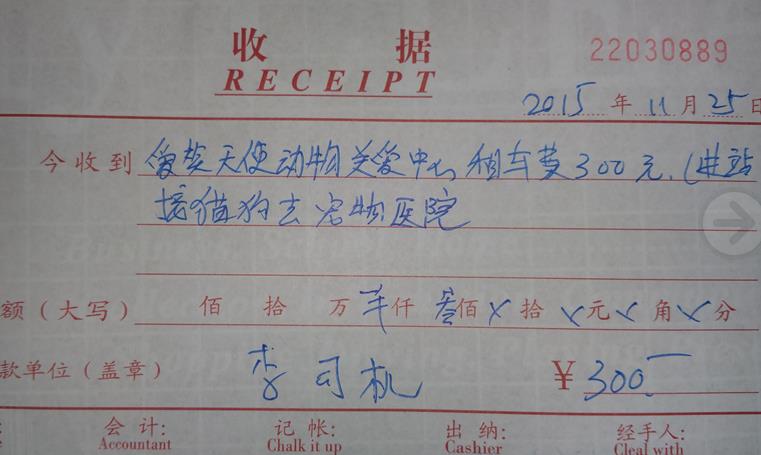 收 据
22030889
RECEIPT
2015 年 11 月 25 日
今收到 天使动物关爱中心 租车费300元.(进站
接猫狗去宠物医院
额(大写) 佰 拾 万 仟 叁佰 拾 元 角 分
款单位(盖章) 李司机 ¥ 300.
会计: 记帐: 出纳: 经手人:
Accountant Chalk it up Cashier Cleal with